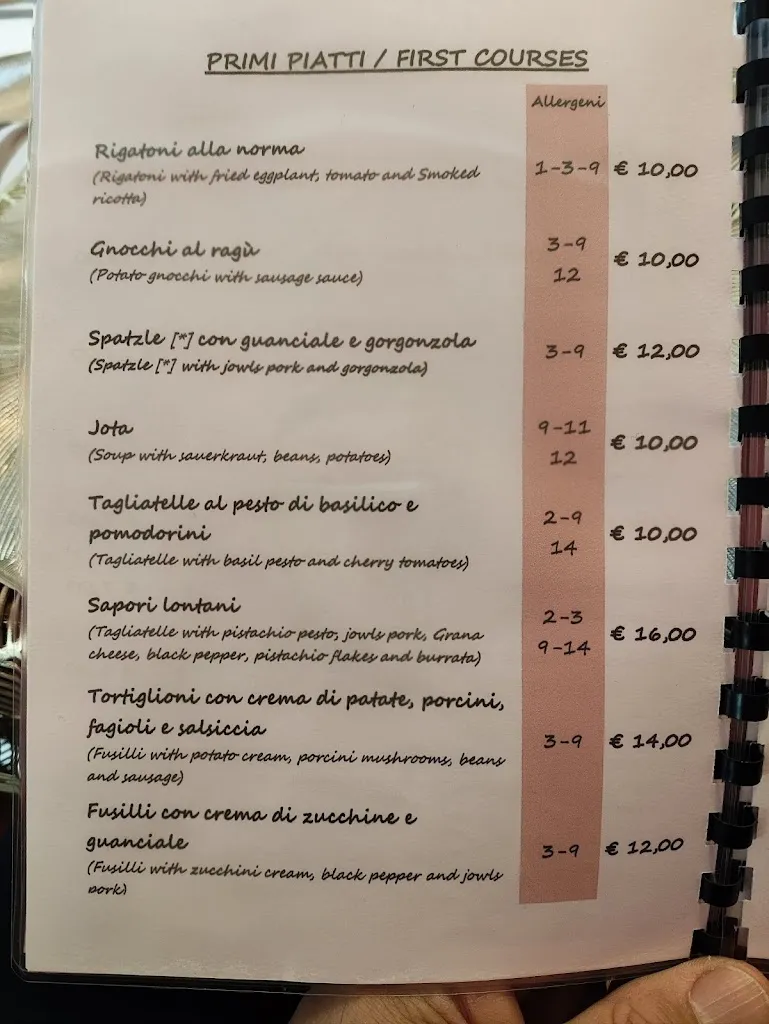 PRIMI PIATTI / FIRST COURSES
Allergeni
Rigatoni alla norma
(Rigatoni with fried eggplant, tomato and Smoked
ricotta)
1-3-9 € 10,00
Gnocchi al ragù
(Potato gnocchi with sausage sauce)
3-9
12
€ 10,00
Spatzle [*] con guanciale e gorgonzola
(Spatzle [*] with jowls pork and gorgonzola)
3-9 € 12,00
Jota
(Soup with sauerkraut, beans, potatoes)
9-11
12
€ 10,00
Tagliatelle al pesto di basilico e
pomodorini
(Tagliatelle with basil pesto and cherry tomatoes)
2-9
14
€ 10,00
Sapori lontani
(Tagliatelle with pistachio pesto, jowls pork, Grana
cheese, black pepper, pistachio flakes and burrata)
2-3
9-14
€ 16,00
Tortiglioni con crema di patate, porcini,
fagioli e salsiccia
(Fusilli with potato cream, porcini mushrooms, beans
and sausage)
3-9 € 14,00
Fusilli con crema di zucchine e
guanciale
(Fusilli with zucchini cream, black pepper and jowls
pork)
3-9 € 12,00